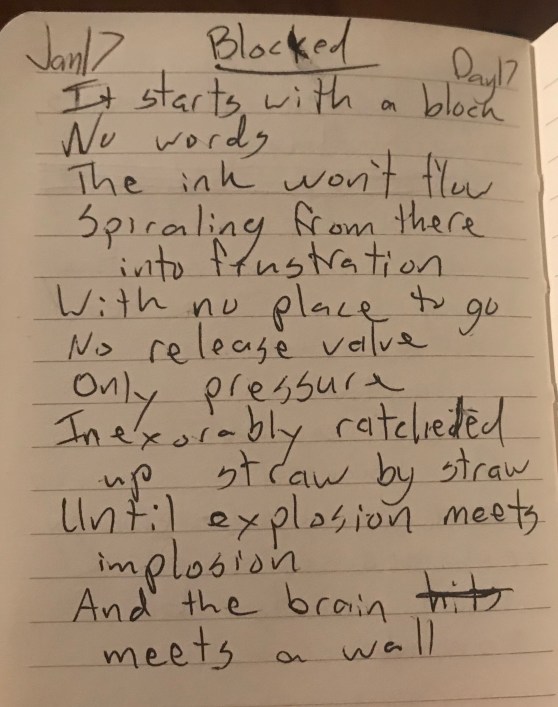 Jan17 Blocked Day17
It starts with a block
No words
The ink won't flow
Spiraling from there
into frustration
With no place to go
No release valve
Only pressure
Inexorably ratcheted
up straw by straw
Until explosion meets
implosion
And the brain hits
meets a wall